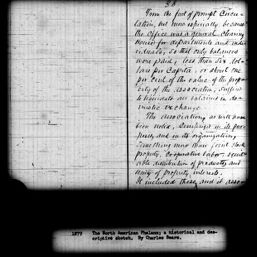 From the fact of prompt circu-
lation, but more especially because
the office was a general clearing
house for departments and indi-
viduals, so that only balances
were paid; less than six dol-
lars per capita, or about one
per cent of the value of the prop-
erty of the association, sufficed
to liquidate all balances in do-
mestic exchange.
The association, as will have
been noted,
and in its organization,
something more than joint stock
property, cooperative labor,
distribution of products, and
unity of property interests.
It included these, and it also
1877 The North American Phalanx; a historical and des-
criptive sketch. By Charles Sears.